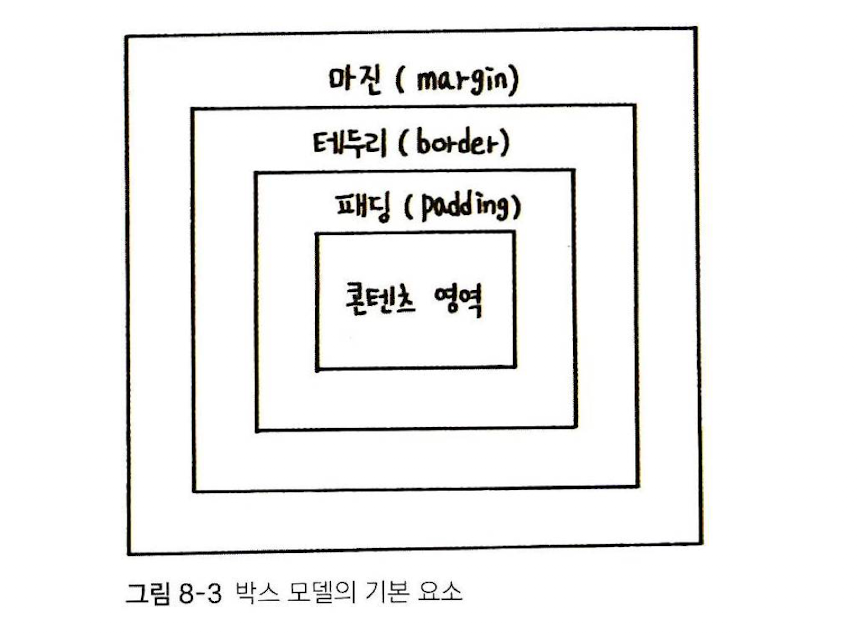 마진 ( margin)
테두리 ( border)
패딩 ( padding)
콘텐츠 영역
그림 8-3 박스 모델의 기본 요소